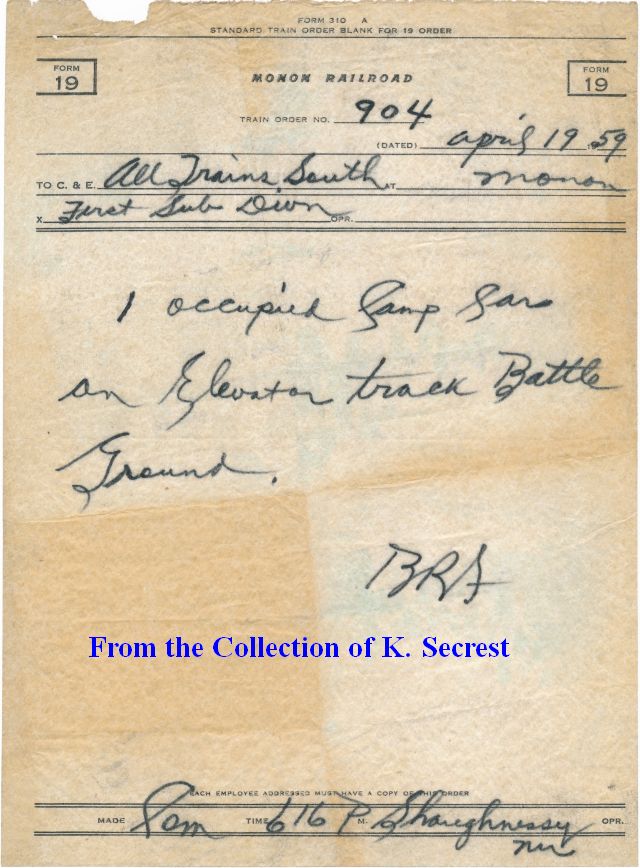 FORM 310 A
STANDARD TRAIN ORDER BLANK FOR 19 ORDER
FORM 19
MONON RAILROAD
FORM 19
TRAIN ORDER NO. 904
(DATED) April 19 1959
TO C. & E. All Trains South AT Monon
X First Sub Divn OPR.
1 occupied Camp Car
on Elevator track Battle
Ground.
BRF
From the Collection of K. Secrest
EACH EMPLOYEE ADDRESSED MUST HAVE A COPY OF THIS ORDER
MADE Com TIME 616 P M. Shaughnessy OPR.